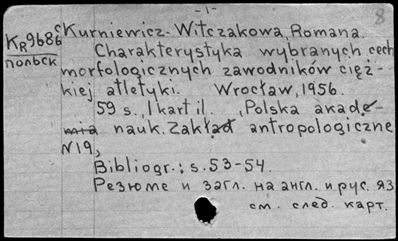 -1-
8
KR9686c
польск
Kurniewicz-Witczakowa, Romana.
Charakterystyka wybranych cech
morfologicznych zawodników cięż-
kiej atletyki. Wrocław, 1956.
59 s., 1 kart il. (Polska akade-
mia nauk. Zakład antropologiczne
N19,
Bibliogr.: s. 53-54.
Резюме и загл. на англ. и рус. яз
см. след. карт.